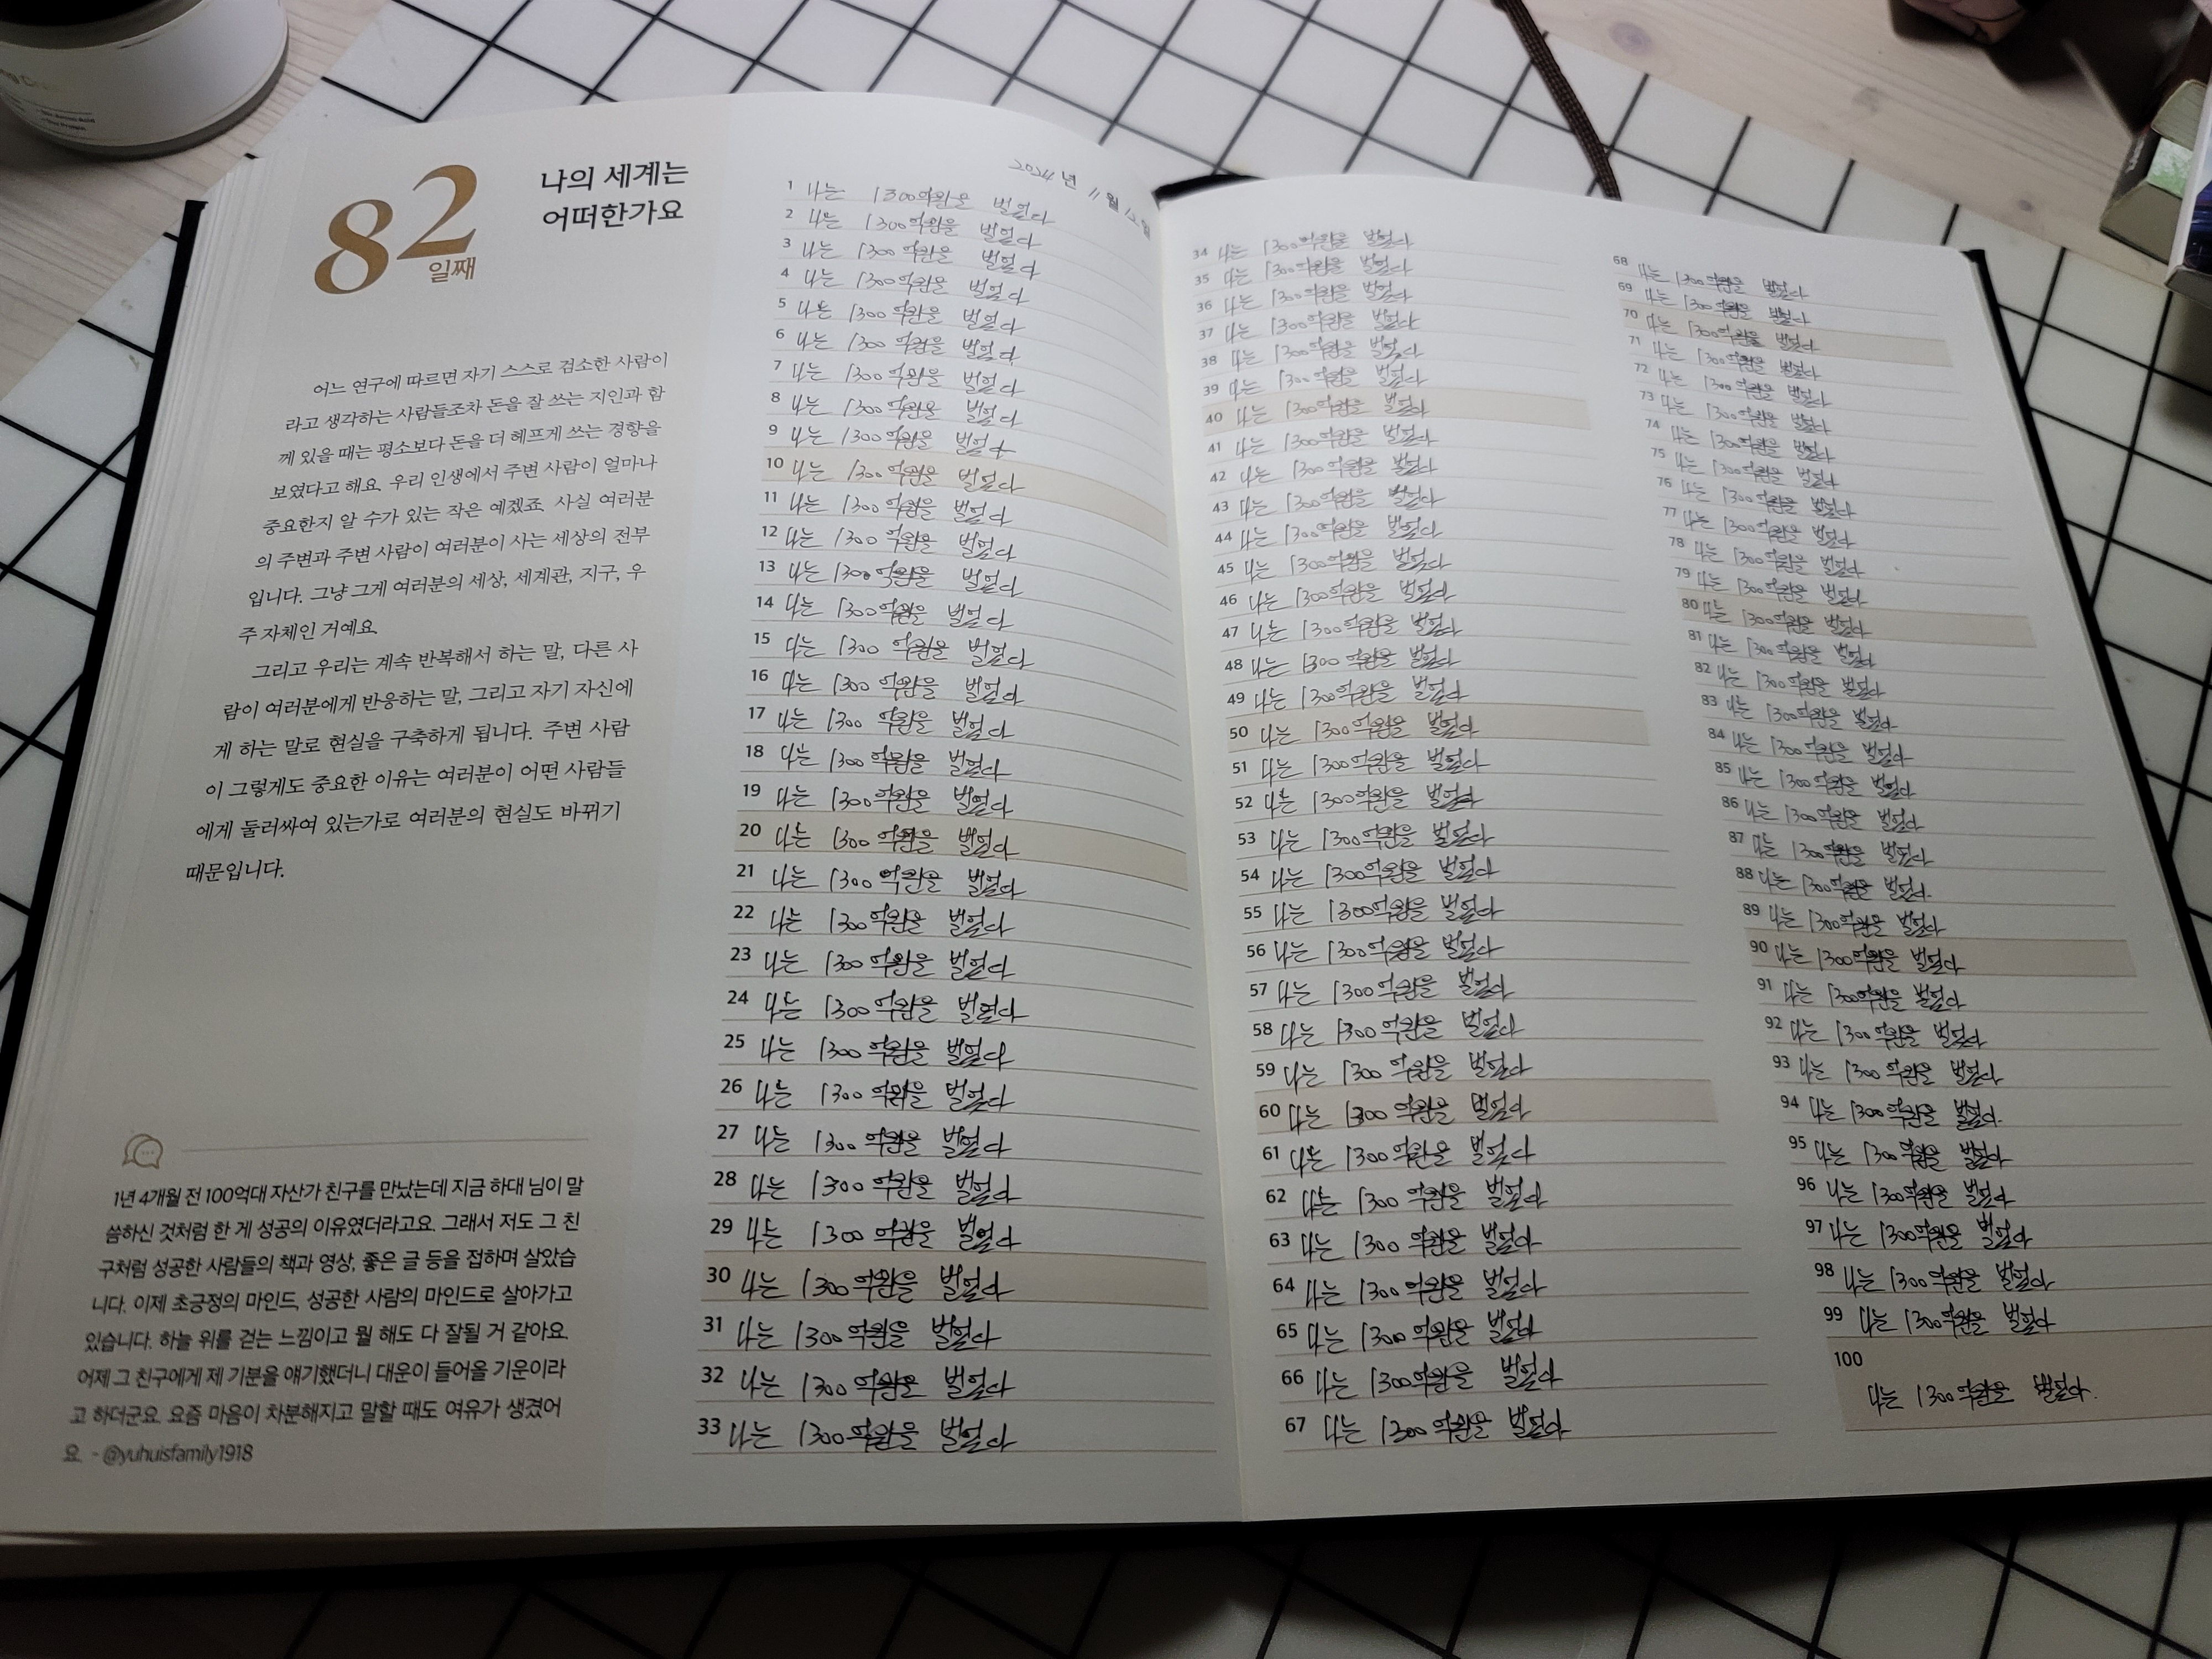 82
일째
나의 세계는
어떠한가요
어느 연구에 따르면 자기 스스로 검소한 사람이
라고 생각하는 사람들조차 돈을 잘 쓰는 지인과 함
께 있을 때는 평소보다 돈을 더 헤프게 쓰는 경향을
보였다고 해요. 우리 인생에서 주변 사람이 얼마나
중요한지 알 수가 있는 작은 예겠죠. 사실 여러분
의 주변과 주변 사람이 여러분이 사는 세상의 전부
입니다. 그냥 그게 여러분의 세상, 세계관, 지구, 우
주 자체인 거예요.
그리고 우리는 계속 반복해서 하는 말, 다른 사
람이 여러분에게 반응하는 말, 그리고 자기 자신에
게 하는 말로 현실을 구축하게 됩니다. 주변 사람
이 그렇게도 중요한 이유는 여러분이 어떤 사람들
에게 둘러싸여 있는가로 여러분의 현실도 바뀌기
때문입니다.
1년 4개월 전 100억대 자산가 친구를 만났는데 지금 하대 님이 말
씀하신 것처럼 한 게 성공의 이유였더라고요. 그래서 저도 그 친
구처럼 성공한 사람들의 책과 영상, 좋은 글 등을 접하며 살았습
니다. 이제 초긍정의 마인드, 성공한 사람의 마인드로 살아가고
있습니다. 하늘 위를 걷는 느낌이고 뭘 해도 다 잘될 거 같아요.
어제 그 친구에게 제 기분을 얘기했더니 대운이 들어올 기운이라
고 하더군요. 요즘 마음이 차분해지고 말할 때도 여유가 생겼어
요. - @yuhuisfamily1918
2024 년 11 월 12 일
1 나는 1300억원을 벌었다
2 나는 1300억원을 벌었다
3 나는 1300억원을 벌었다
4 나는 1300억원을 벌었다
5 나는 1300억원을 벌었다
6 나는 1300억원을 벌었다
7 나는 1300억원을 벌었다
8 나는 1300억원을 벌었다
9 나는 1300억원을 벌었다
10 나는 1300억원을 벌었다
11 나는 1300억원을 벌었다
12 나는 1300억원을 벌었다
13 나는 1300억원을 벌었다
14 나는 1300억원을 벌었다
15 나는 1300억원을 벌었다
16 나는 1300억원을 벌었다
17 나는 1300억원을 벌었다
18 나는 1300억원을 벌었다
19 나는 1300억원을 벌었다
20 나는 1300억원을 벌었다
21 나는 1300억원을 벌었다
22 나는 1300억원을 벌었다
23 나는 1300억원을 벌었다
24 나는 1300억원을 벌었다
25 나는 1300억원을 벌었다
26 나는 1300억원을 벌었다
27 나는 1300억원을 벌었다
28 나는 1300억원을 벌었다
29 나는 1300억원을 벌었다
30 나는 1300억원을 벌었다
31 나는 1300억원을 벌었다
32 나는 1300억원을 벌었다
33 나는 1300억원을 벌었다
34 나는 1300억원을 벌었다
35 나는 1300억원을 벌었다
36 나는 1300억원을 벌었다
37 나는 1300억원을 벌었다
38 나는 1300억원을 벌었다
39 나는 1300억원을 벌었다
40 나는 1300억원을 벌었다
41 나는 1300억원을 벌었다
42 나는 1300억원을 벌었다
43 나는 1300억원을 벌었다
44 나는 1300억원을 벌었다
45 나는 1300억원을 벌었다
46 나는 1300억원을 벌었다
47 나는 1300억원을 벌었다
48 나는 1300억원을 벌었다
49 나는 1300억원을 벌었다
50 나는 1300억원을 벌었다
51 나는 1300억원을 벌었다
52 나는 1300억원을 벌었다
53 나는 1300억원을 벌었다
54 나는 1300억원을 벌었다
55 나는 1300억원을 벌었다
56 나는 1300억원을 벌었다
57 나는 1300억원을 벌었다
58 나는 1300억원을 벌었다
59 나는 1300억원을 벌었다
60 나는 1300억원을 벌었다
61 나는 1300억원을 벌었다
62 나는 1300억원을 벌었다
63 나는 1300억원을 벌었다
64 나는 1300억원을 벌었다
65 나는 1300억원을 벌었다
66 나는 1300억원을 벌었다
67 나는 1300억원을 벌었다
68 나는 1300억원을 벌었다
69 나는 1300억원을 벌었다
70 나는 1300억원을 벌었다
71 나는 1300억원을 벌었다
72 나는 1300억원을 벌었다
73 나는 1300억원을 벌었다
74 나는 1300억원을 벌었다
75 나는 1300억원을 벌었다
76 나는 1300억원을 벌었다
77 나는 1300억원을 벌었다
78 나는 1300억원을 벌었다
79 나는 1300억원을 벌었다
80 나는 1300억원을 벌었다
81 나는 1300억원을 벌었다
82 나는 1300억원을 벌었다
83 나는 1300억원을 벌었다
84 나는 1300억원을 벌었다
85 나는 1300억원을 벌었다
86 나는 1300억원을 벌었다
87 나는 1300억원을 벌었다
88 나는 1300억원을 벌었다.
89 나는 1300억원을 벌었다
90 나는 1300억원을 벌었다
91 나는 1300억원을 벌었다
92 나는 1300억원을 벌었다
93 나는 1300억원을 벌었다
94 나는 1300억원을 벌었다.
95 나는 1300억원을 벌었다
96 나는 1300억원을 벌었다
97 나는 1300억원을 벌었다
98 나는 1300억원을 벌었다
99 나는 1300억원을 벌었다
100
나는 1300억원을 벌었다.